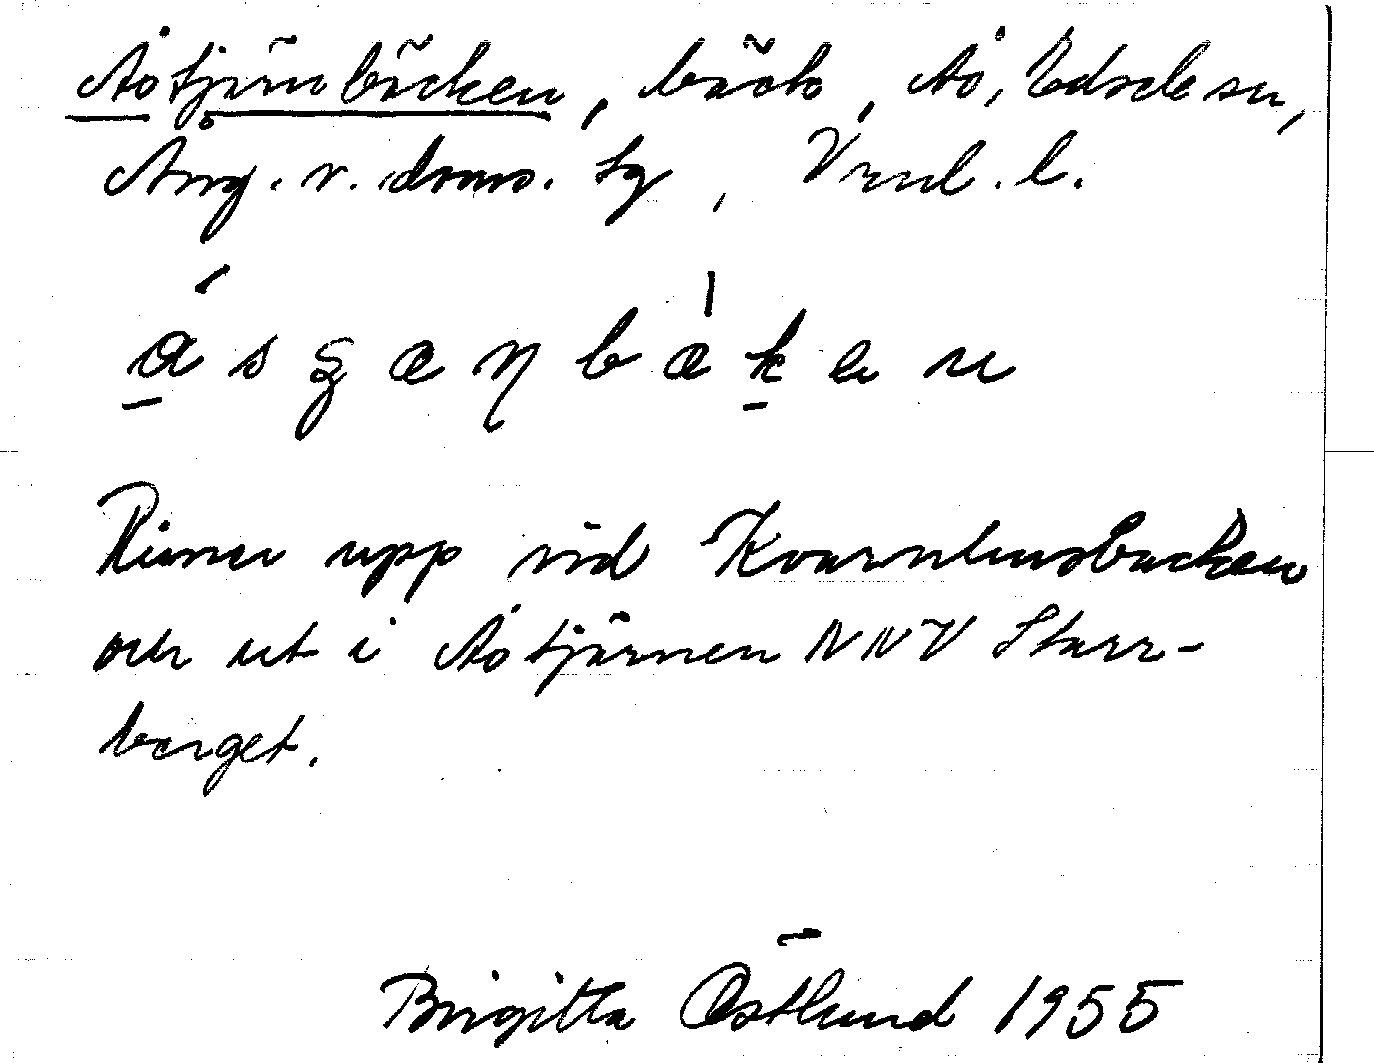 Åstjärnbäcken, bäck, Ås, Edsele sn,
Ång. v. doms. tg, Vnrl. l.
a s ʂ æ ŋ b æ k e n
Rinner upp vid Kvarnhusbacken
och ut i Åstjärnen NNV Starr-
berget.
Birgitta Östlund 1955